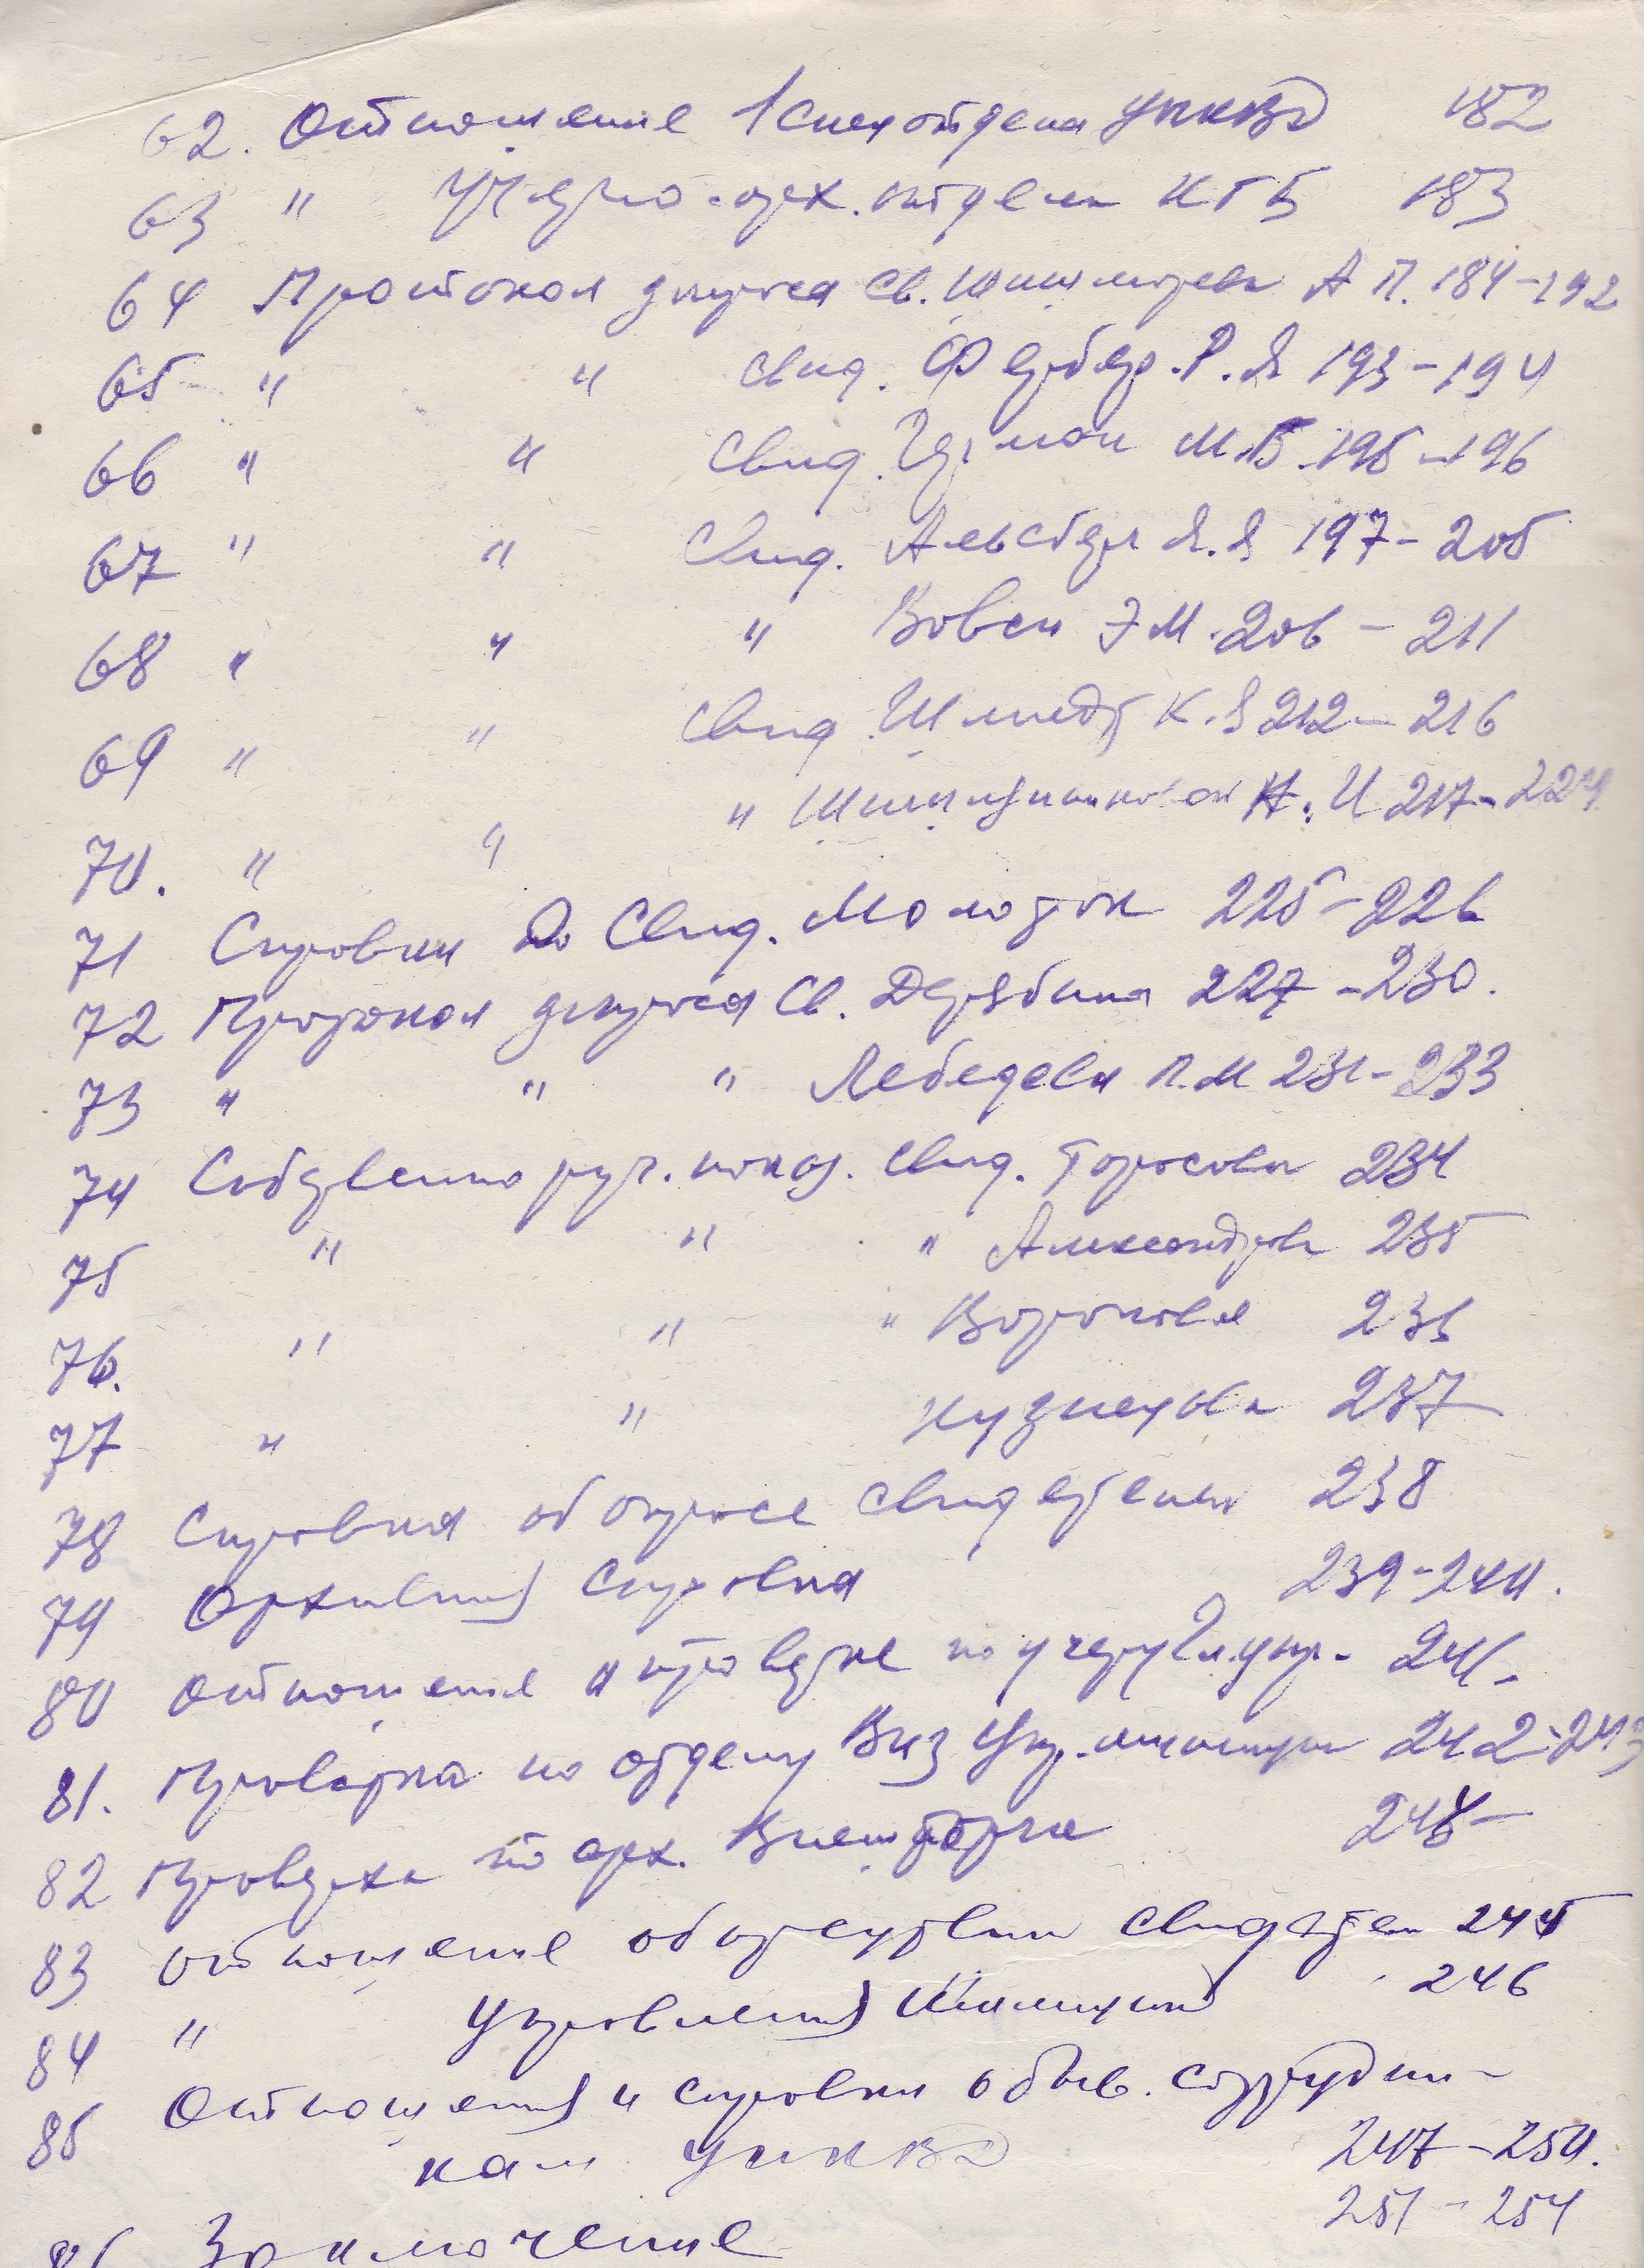 62. Отношение 1 спецотдела УНКВД 182
63 " Учетно-арх. отдела КГБ 183
64 Протокол допроса св. Шишмарева А П. 184-192
65 " " Свид. Фербер. Р. Я 193-194
66 " " Свид. М.Б. 195-196
67 " " Свид. Альсберг Я. Я 197-205
68 " " " Вовси Э М. 206-211
69 " " Свид. Шмидт К. Я 212-216
70. " " " И 217-224
71 Справки о Свид. 225-226
72 Протокол допроса Св. Дерябина 227-230.
73 " " " Лебедева П.М 231-233
74 Собственноруч. показ. свид. Тарасова 234
75 " " " Александрова 235
76. " " " Воронова 236
77 " " Кузнецова 237
78 Справка об опросе свидетелей 238
79 Архивная справка 239-240.
80 Отношение и проверке по учету Гл. упр. 241.
81. Проверка по отделу Виз Упр. милиции 242-243
82 Проверка по арх. Внешторга 244-
83 Отношение об отсутствии свидетел 245
84 " Управления Милиции 246
85 Отношения и справки о быв. сотрудни-
кам УНКВД 247-250.
86 Заключение 251-254